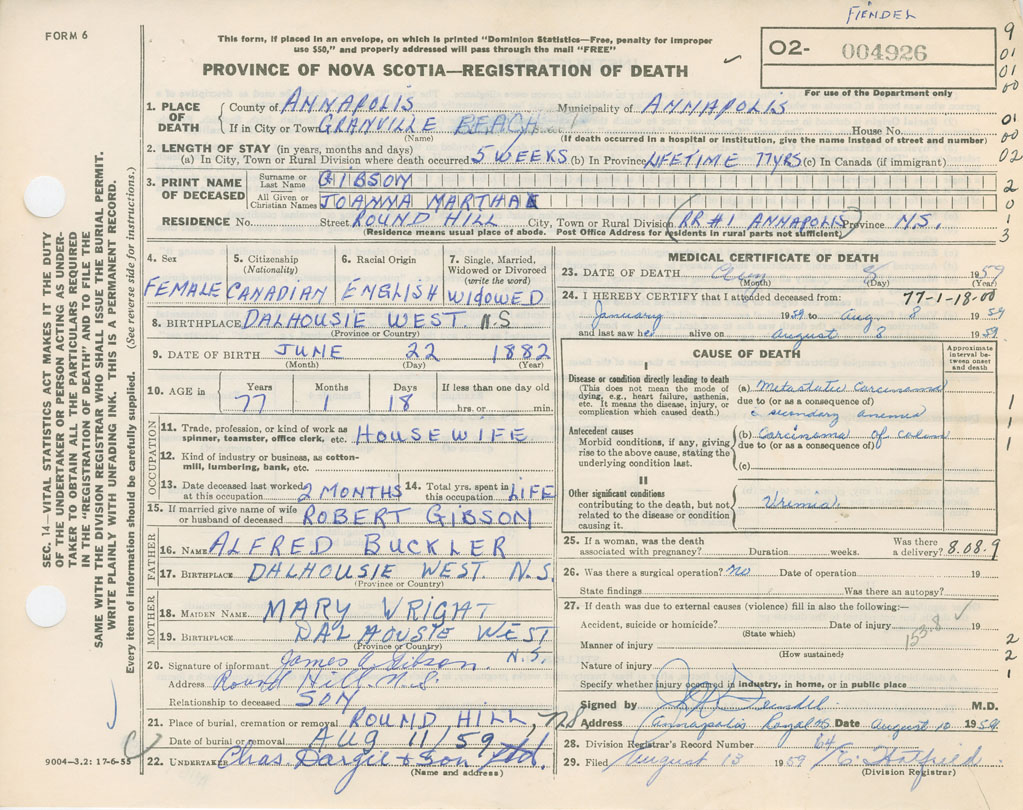 FIENDEL
FORM 6
This form, if placed in an envelope, on which is printed "Dominion Statistics—Free, penalty for improper
use $50," and properly addressed will pass through the mail "FREE"
O2- 004926
PROVINCE OF NOVA SCOTIA—REGISTRATION OF DEATH
For use of the Department only
9
01
01
00
01
00
02
2
0
1
3
1. PLACE OF DEATH
County of ANNAPOLIS Municipality of ANNAPOLIS
If in City or Town GRANVILLE BEACH House No.
(Name) (If death occurred in a hospital or institution, give the name instead of street and number)
2. LENGTH OF STAY (in years, months and days)
(a) In City, Town or Rural Division where death occurred 5 WEEKS (b) In Province LIFETIME 77YRS (c) In Canada (if immigrant)
3. PRINT NAME OF DECEASED
Surname or Last Name GIBSON
All Given or Christian Names JOANNA MARTHA
RESIDENCE No. Street ROUND HILL City, Town or Rural Division RR#1 ANNAPOLIS Province N.S.
(Residence means usual place of abode. Post Office Address for residents in rural parts not sufficient)
4. Sex 5. Citizenship (Nationality) 6. Racial Origin 7. Single, Married, Widowed or Divorced (write the word)
FEMALE CANADIAN ENGLISH WIDOWED
8. BIRTHPLACE DALHOUSIE WEST. N.S
(Province or Country)
9. DATE OF BIRTH JUNE 22 1882
(Month) (Day) (Year)
10. AGE in Years Months Days If less than one day old
77 1 18 hrs. or min.
OCCUPATION
11. Trade, profession, or kind of work as
spinner, teamster, office clerk, etc. HOUSEWIFE
12. Kind of industry or business, as cotton-
mill, lumbering, bank, etc.
13. Date deceased last worked
at this occupation 2 MONTHS
14. Total yrs. spent in
this occupation LIFE
15. If married give name of wife
or husband of deceased ROBERT GIBSON
FATHER
16. NAME ALFRED BUCKLER
17. BIRTHPLACE DALHOUSIE WEST. N.S.
(Province or Country)
MOTHER
18. MAIDEN NAME MARY WRIGHT
19. BIRTHPLACE DALHOUSIE WEST
(Province or Country) N.S.
20. Signature of informant James A. Gibson.
Address Round Hill. N.S.
Relationship to deceased SON
21. Place of burial, cremation or removal ROUND HILL, NS
Date of burial or removal AUG 11/59
22. UNDERTAKER Chas Dargie & Son Ltd.
(Name and address)
9004—3.2: 17-6-55
MEDICAL CERTIFICATE OF DEATH
23. DATE OF DEATH Aug 8 1959
(Month) (Day) (Year)
24. I HEREBY CERTIFY that I attended deceased from: 77-1-18-00
January 1959 to Aug 8 1959
and last saw her alive on August 8 1959.
CAUSE OF DEATH
Approximate interval between onset and death
I
Disease or condition directly leading to death
(This does not mean the mode of
dying, e.g., heart failure, asthenia,
etc. It means the disease, injury, or
complication which caused death.)
(a) Metastatic Carcinoma
due to (or as a consequence of)
c secondary anemia
Antecedent causes
Morbid conditions, if any, giving
rise to the above cause, stating the
underlying condition last.
(b) Carcinoma of colon
due to (or as a consequence of)
(c)
1
1
1
II
Other significant conditions
contributing to the death, but not
related to the disease or condition
causing it.
Uremia
25. If a woman, was the death
associated with pregnancy? Duration weeks. Was there
a delivery? 8.08.9
26. Was there a surgical operation? no Date of operation 19
State findings Was there an autopsy?
27. If death was due to external causes (violence) fill in also the following:—
Accident, suicide or homicide? Date of injury 19
(State which)
153.8
Manner of injury
(How sustained)
2
2
1
Nature of injury
Specify whether injury occurred in industry, in home, or in public place
Signed by M.D.
Address Annapolis Royal NS Date August 10 1959
28. Division Registrar's Record Number 64
29. Filed August 13 1959 E. Hatfield
(Division Registrar)
SEC. 14—VITAL STATISTICS ACT MAKES IT THE DUTY
OF THE UNDERTAKER OR PERSON ACTING AS UNDER-
TAKER TO OBTAIN ALL THE PARTICULARS REQUIRED
IN THE "REGISTRATION OF DEATH" AND TO FILE THE
SAME WITH THE DIVISION REGISTRAR WHO SHALL ISSUE THE BURIAL PERMIT.
WRITE PLAINLY WITH UNFADING INK. THIS IS A PERMANENT RECORD.
Every item of information should be carefully supplied. (See reverse side for instructions.)